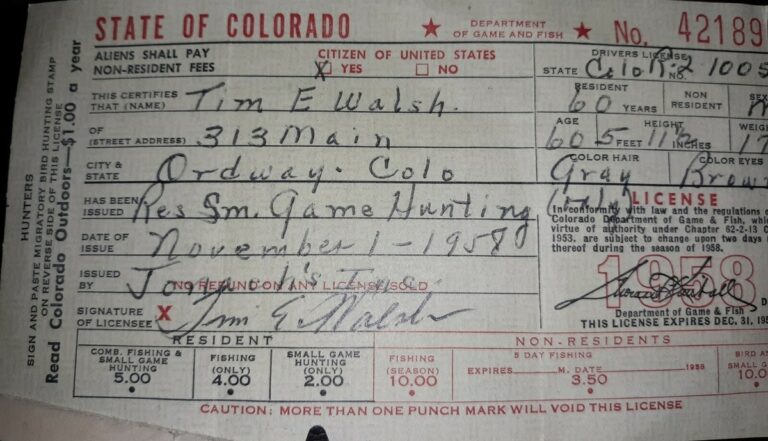 STATE OF COLORADO ★ DEPARTMENT OF GAME AND FISH ★ No. 42189
ALIENS SHALL PAY NON-RESIDENT FEES
CITIZEN OF UNITED STATES
X YES NO
DRIVERS LICENSE
STATE Colo NO. R-2 1005
THIS CERTIFIES THAT (NAME) Tim E Walsh.
RESIDENT 60 YEARS NON RESIDENT SEX M
OF (STREET ADDRESS) 313 Main
AGE 60 HEIGHT 5 FEET 11½ INCHES WEIG 17
CITY & STATE Ordway. Colo
COLOR HAIR Gray COLOR EYES Brow
HAS BEEN ISSUED Res Sm. Game Hunting (only) LICENSE
In conformity with law and the regulations o
Colorado Department of Game & Fish, whic
virtue of authority under Chapter 62-2-13 C
1953, are subject to change upon two days
thereof during the season of 1958.
DATE OF ISSUE November 1-1958
ISSUED BY Inc.
NO REFUND ON ANY LICENSE SOLD
1958
SIGNATURE OF LICENSEE X Tim E. Walsh
Department of Game & Fish
THIS LICENSE EXPIRES DEC. 31, 195
RESIDENT
COMB. FISHING & SMALL GAME HUNTING 5.00
FISHING (ONLY) 4.00
SMALL GAME HUNTING (ONLY) 2.00
NON-RESIDENTS
FISHING (SEASON) 10.00
5 DAY FISHING
EXPIRES M. DATE 1958
3.50
BIRD AN
SMALL G
10.0
CAUTION: MORE THAN ONE PUNCH MARK WILL VOID THIS LICENSE
HUNTERS
SIGN AND PASTE MIGRATORY BIRD HUNTING STAMP
ON REVERSE SIDE OF THIS LICENSE
Read Colorado Outdoors—$1.00 a year